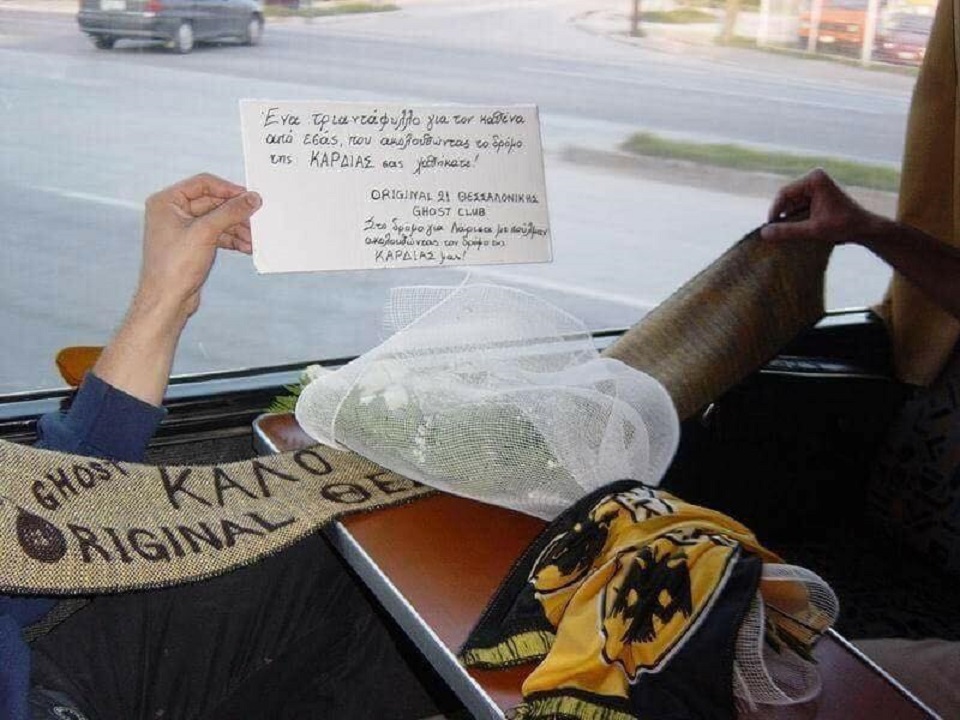 Ένα τριαντάφυλλο για τον καθένα
από εσάς, που ακολουθώντας το δρόμο
της ΚΑΡΔΙΑΣ σας χαθήκατε!
ORIGINAL 21 ΘΕΣΣΑΛΟΝΙΚΗΣ
GHOST CLUB
Στο δρόμο για Λάρισα με πούλμαν
ακολουθώντας τον δρόμο της
ΚΑΡΔΙΑΣ μας!
GHOST ΚΑΛΟ
ORIGINAL ΘΕΣ